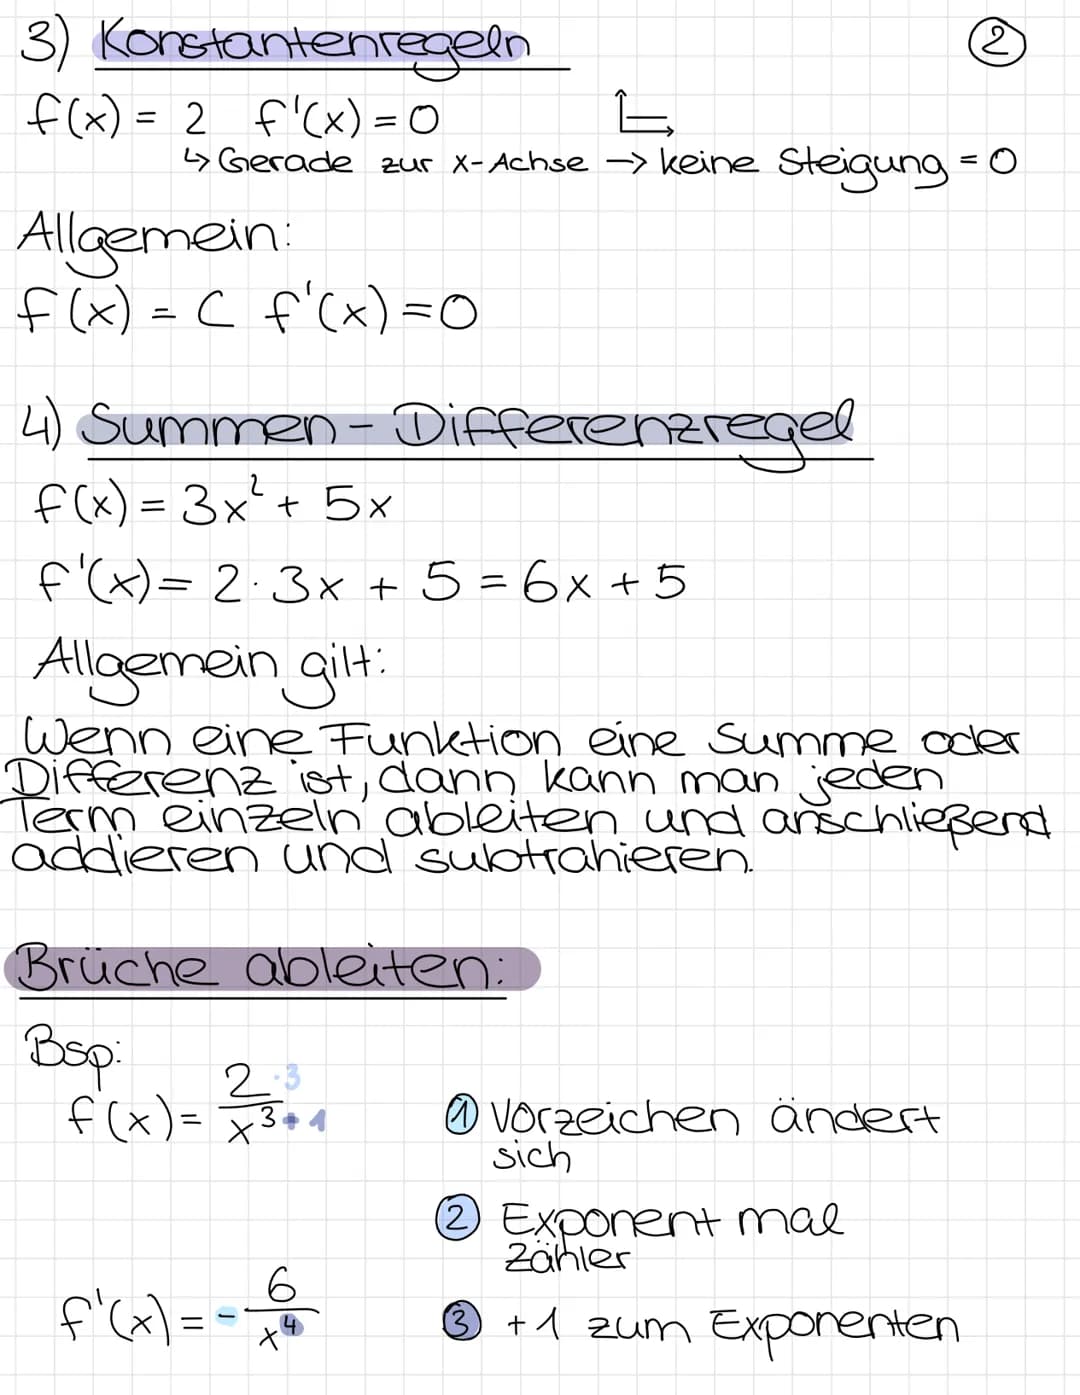 3) Konstantenregeln
2
f(x) = 2 f'(x) = 0
↳ Gerade zur x-Achse → keine Steigung = 0
Allgemein:
f(x) = C f'(x) = 0
4) Summen- Differenzregel
f(x) = 3x² + 5x
f'(x) = 2·3x + 5 = 6x + 5
Allgemein gilt:
Wenn eine Funktion eine Summe oder
Differenz ist, dann kann man jeden
Term einzeln ableiten und anschließend
addieren und subtrahieren.
Brüche ableiten:
Bsp:
f(x) = 2·3 / x³+1
① Vorzeichen ändert
sich
② Exponent mal
Zähler
f'(x) = - 6 / x⁴
③ +1 zum Exponenten